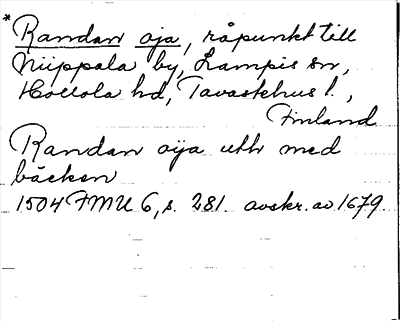 *Randan oja, råpunkt till
Niippala by, Lampis sn,
Hollola hd, Tavastehus l.,
Finland
Randan oija uthr med
bäcken
1504 FMU 6, s. 281. avskr. av 1679.